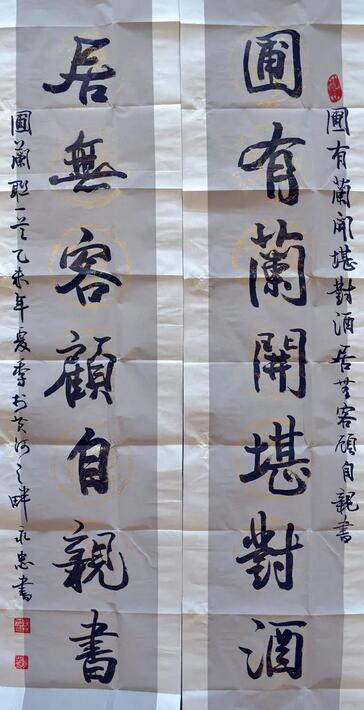 圃有蘭開堪對酒
圃有蘭開堪對酒居無客顧自親書
居無客顧自親書
圃蘭聯一首乙未年夏季於黄河之畔永忠書